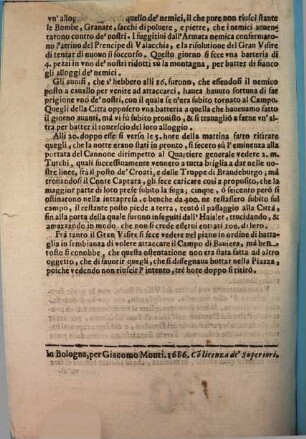 vn' alloggiamento quello de' nemici, il che pure non riuscì stante
le Bombe, Granate, sacchi di poluere, e pietre, che i nemici auuen-
tarono contro de' nostri. I fuggitiui dall'Armata nemica confermaro-
no l'arriuo del Prencipe di Valacchia, e la risolutione del Gran Visire
di tentar di nuouo il soccorso. Questo giorno si fece vna batteria di
4. pezzi in vno de' nostri ridotti sù la montagna, per batter di fianco
gli alloggi de' nemici.
Gli auuisi, che s'hebbero alli 16. furono, che essendosi il nemico
posto a cauallo per venire ad attaccarci, haueua hauuto fortuna di far
prigione vno de' nostri, con il quale se n'era subito tornato al Campo.
Quegli della Città opposero vna batteria a quella che haueuamo fatto
il giorno auanti, mà vi fù subito prouisto, & si trauagliò a farne vn'al-
tra per batter il rouerscio del loro alloggio.
Alli 20. doppo esse si verso le 5. hore della mattina fatto ritirare
quegli, che la notte erano stati in pronto, si fecero sù l'eminenza alla
portata del Cannone dirimpetto al Quartiere generale vedere 2. m.
Turchi, quali successiuamente vennero a tutta briglia a dar nelle no-
stre linee, frà il posto de' Croati, e delle Truppe di Brandeburgo; mà
trouandosi il Conte Caprara, gli fece caricare così a proposito, che la
maggior parte di loro prese subito la fuga, cinque, ò seicento però si
ostinarono nella intrapresa, e benche da 400. ne restassero subito sul
campo, il restante posto piede a terra, tentò il passaggio alla Città,
fin alla porta della quale furono inseguiti dall'Haisler, trucidando, &
amazzando in modo che non si crede esserui entrati 100. di loro.
Frà tanto il Gran Visire si fece vedere nel piano in ordine di batta-
glia in sembianza di volere attaccare il Campo di Bauiera, mà ben-
tosto si conobbe, che questa ostentatione non era stata fatta ad altro
oggetto, che di fauorir quegli, che si disegnaua buttar nella Piazza,
poiche vedendo non riuscir l'intento, trè hore doppo si ritirò.
In Bologna, per Giacomo Monti. 1686. Cō licenza de' Superiori.